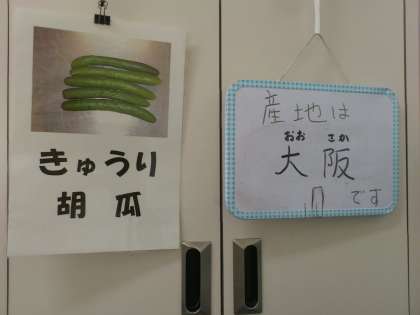 きゅうり
胡瓜
産地は
おお さか
大阪
です